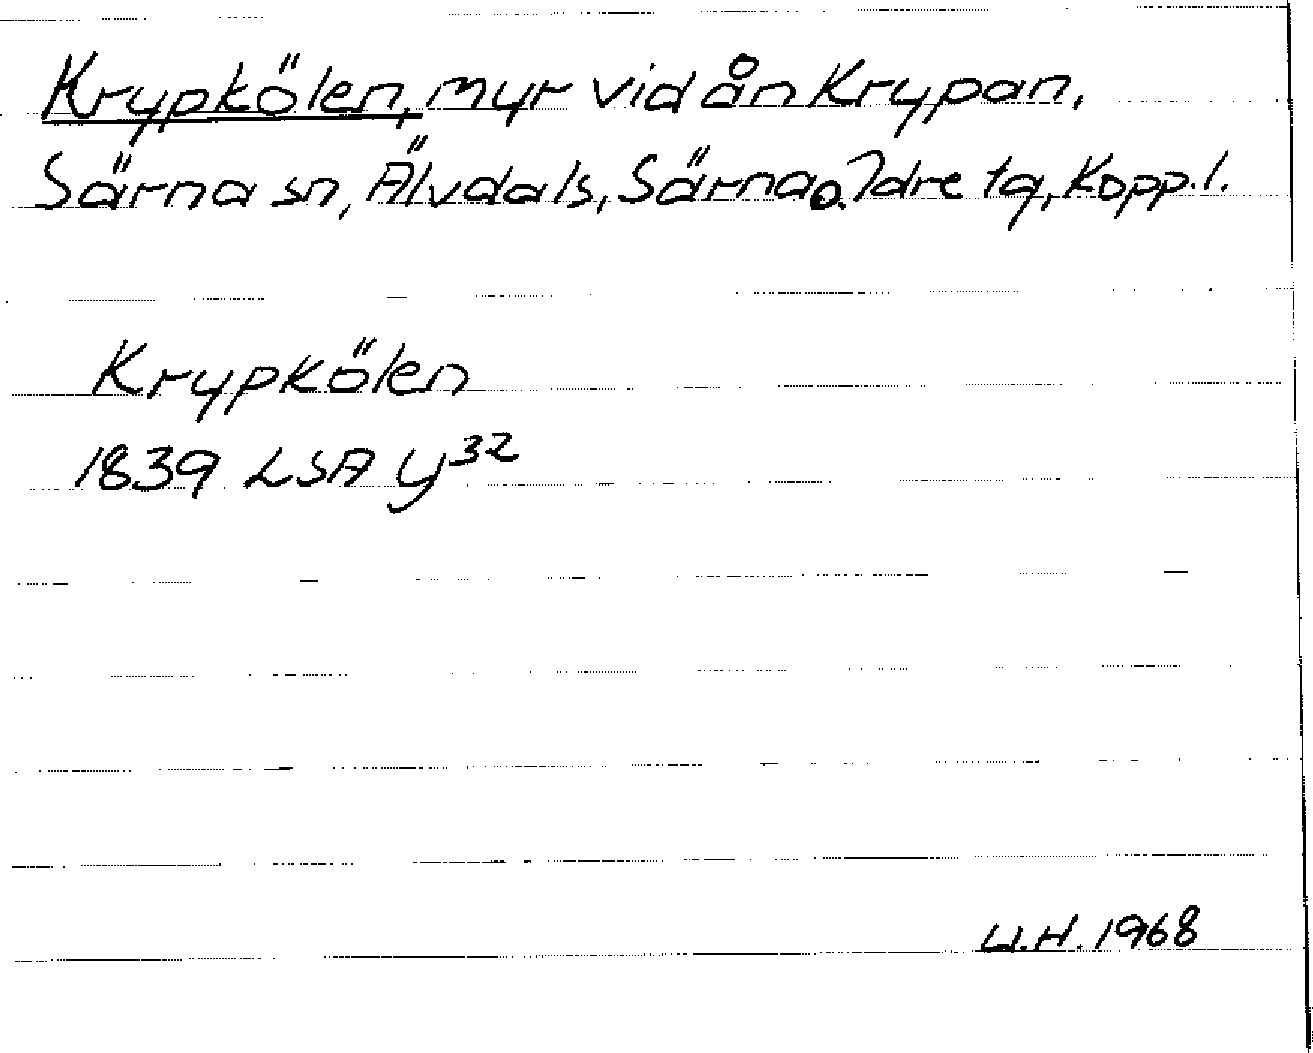 Krypkölen, myr vid ån Krypan,
Särna sn, Älvdals, Särna o. Idre tg, Kopp. l.
Krypkölen
1839 LSA y³²
U.H. 1968